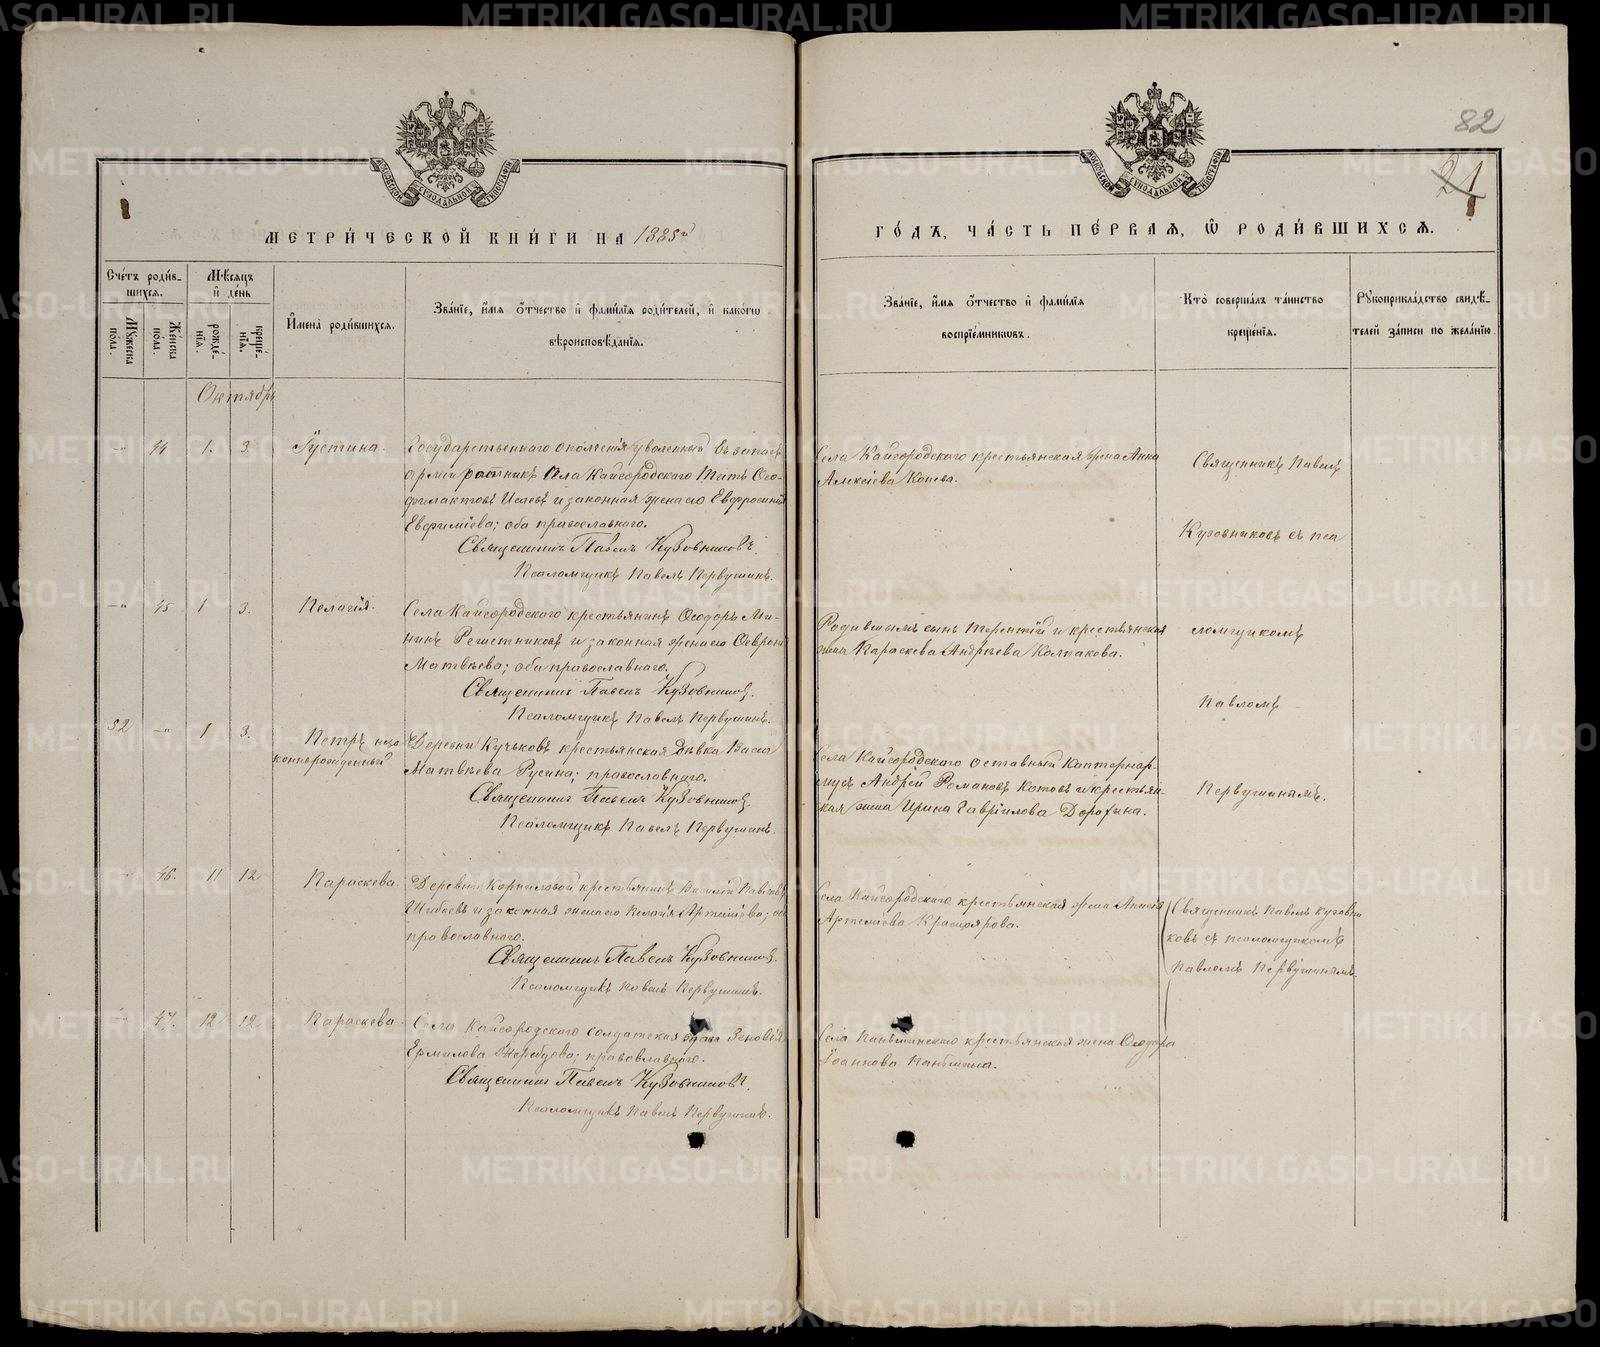 82
21
МЕТРИ́ЧЕСКОЙ КНИ́ГИ НА 1885й
ГО́ДЪ, ЧА́СТЬ ПЕ́РВАЯ, Ѽ РОДИ́ВШИХСЯ.
Сче́тъ роди́в-
шихся.
Мѣ́сяцъ
и҆ де́нь
Мꙋ́жеска по́ла.
Же́нска по́ла.
рожде́-
нїѧ.
креще́-
нїѧ.
И҆мена̀ роди́вшихся.
Зва́нїе, и҆́мѧ ѻ҆́тчество и҆ фами́лїѧ роди́телей, и҆ како́гѡ
вѣроисповѣ́данїѧ.
Зва́нїе, и҆́мѧ ѻ҆́тчество и҆ фами́лїѧ
воспрїе́мникѡвъ.
Кто̀ соверша́лъ та́инство
креще́нїѧ.
Рꙋкоприкла́дство свидѣ́-
телей за́писи по жела́нїю.
Октябрь
44 1. 3. Іустина.
Государственнаго ополченія уволенный въ запасъ
арміи ратникъ Села Кайгородскаго Титъ Ѳео-
филактовъ Исаевъ и законная жена его Евфросинія
Евфиміева; оба православнаго.
Священникъ Павелъ Кузовниковъ.
Псаломщикъ Павелъ Первушинъ.
Села Кайгородскаго крестьянская жена Анна
Алексіева Конева.
Священникъ Павелъ
Кузовниковъ съ пса
45 1 3. Пелагія.
Села Кайгородскаго крестьянинъ Ѳеодоръ Ми-
нинъ Решетниковъ и законная жена его Ѳеврон
Матвѣева; оба православнаго.
Священникъ Павелъ Кузовниковъ.
Псаломщикъ Павелъ Первушинъ.
Родившимъ сынъ Терентій и крестьянская
жена Параскева Андрѣева Колпакова.
ломщикомъ
Павломъ
52 1 3. Петръ неза
коннорожденный
Деревни Кучьковъ крестьянская дѣвка Васса
Матвѣева Русина; православнаго.
Священникъ Павелъ Кузовниковъ.
Псаломщикъ Павелъ Первушинъ.
Села Кайгородскаго отставный Каптенар-
мусъ Андрей Романовъ Котовъ и крестьян-
ская жена Ирина Гавріилова Дорохина.
Первушинымъ.
46. 11 12 Параскева.
Деревни Корниловой крестьянинъ Василій Павловъ
Шибаевъ и законная жена его Пелагія Артеміева; об
православнаго.
Священникъ Павелъ Кузовниковъ.
Псаломщикъ Павелъ Первушинъ.
Села Кайгородскаго крестьянская жена Анисія
Артеміева Красноярова.
Священникъ Павелъ Кузовни
ковъ съ псаломщикомъ
Павломъ Первушинымъ.
47. 12 12 Параскева.
Села Кайгородскаго солдатская жена Зеновія
Ермилова Жеребцова; православнаго.
Священникъ Павелъ Кузовниковъ.
Псаломщикъ Павелъ Первушинъ.
Села крестьянская жена Ѳеодора
Іоаннова
METRIKI.GASO-URAL.RU